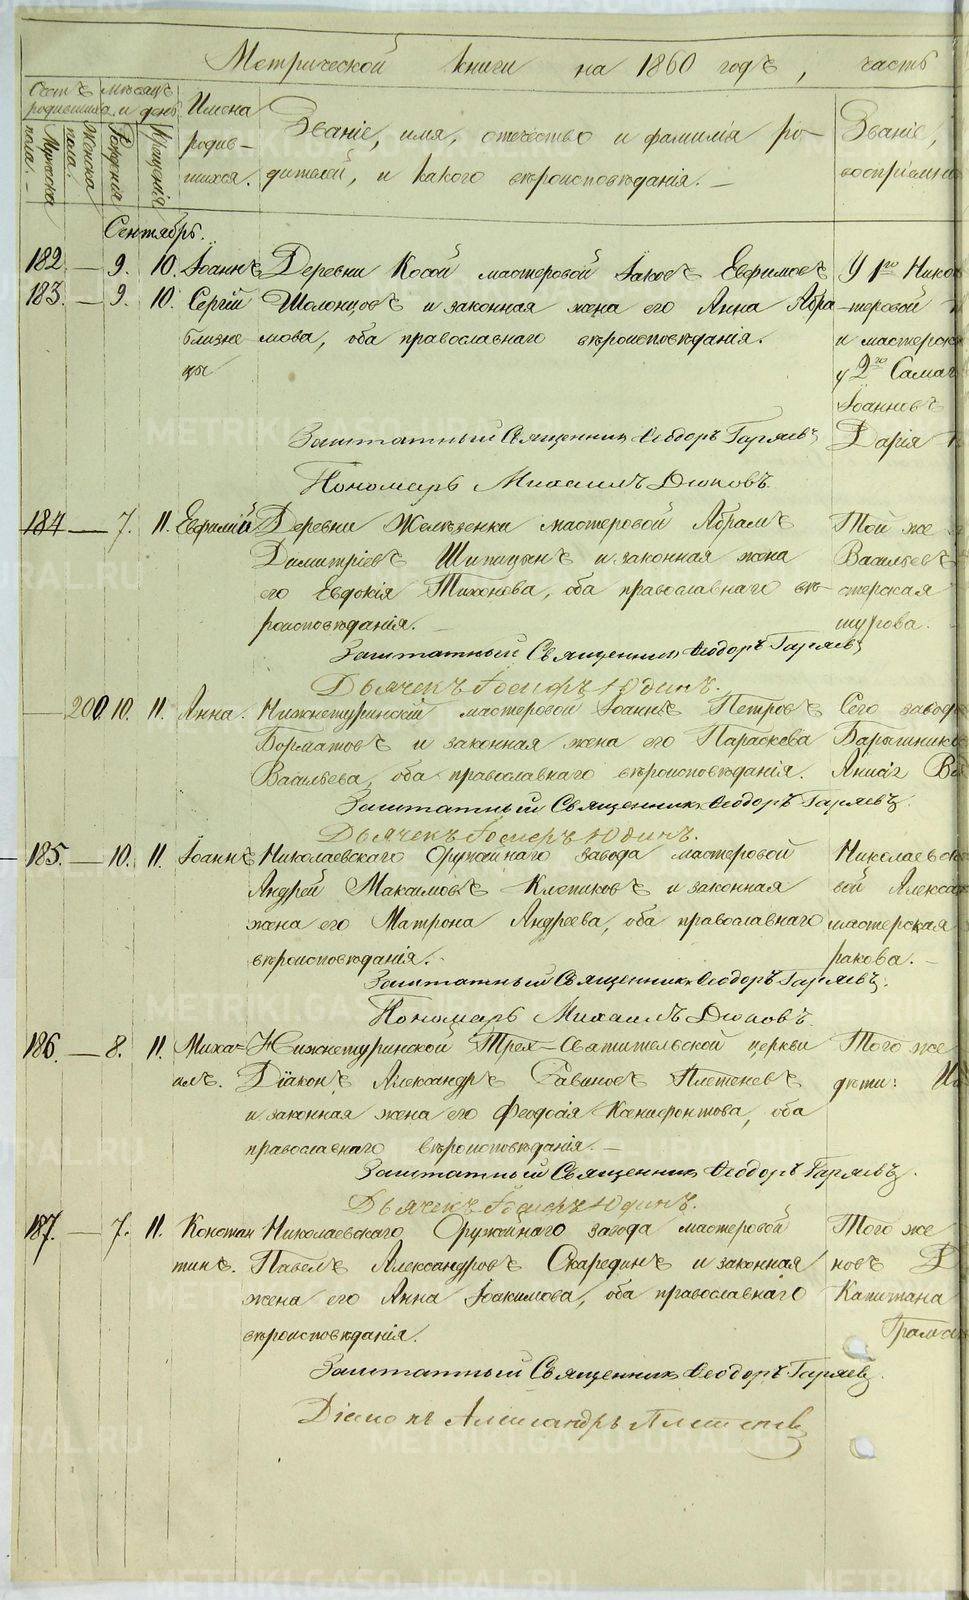 Метрической книги на 1860 годъ, часть
Счетъ родившихся
Мѣсяцъ и день
Мужеска пола.
Женска пола.
Рожденія
Крещенія
Имена родив-
шихся.
Званіе, имя, отечество и фамилія ро-
дителей, и какого вѣроисповѣданія.
Званіе,
воспріемни
Сентябрь.
182. — 9. 10. Іоаннъ Деревни Косой мастеровой Іаковъ Евфимовъ У 1го Нико
183. — 9. 10. Сергій и законная жена его Анна Абра- теровой
близне мова, оба православнаго вѣроисповѣданія. и мастерск
цы у 2го Сама
Іоанновъ
Заштатный Священникъ Ѳеодоръ Гаряевъ Дарія
Пономарь Михаилъ Дюковъ
184 — 7. 11. Евфимій Деревни Желѣзенки мастеровой Абрамъ Той же
Димитріевъ Шипицынъ и законная жена Васильевъ
его Евдокія Тихонова, оба православнаго вѣ- стерская
роисповѣданія. шурова.
Заштатный Священникъ Ѳеодоръ Гаряевъ
Дьячекъ Іосифъ Юдинъ.
— 200. 10. 11. Анна. Нижнетуринскій мастеровой Іоаннъ Петровъ Сего завод
Борматовъ и законная жена его Параскева Барышников
Васильева, оба православнаго вѣроисповѣданія.
Заштатный Священникъ Ѳеодоръ Гаряевъ.
Дьячекъ Іосифъ Юдинъ.
185. — 10. 11. Іоаннъ Николаевскаго Оружейнаго завода мастеровой Николаевск
Андрей Максимовъ Клепиковъ и законная вой Алекса
жена его Матрона Андреева, оба православнаго мастерская
вѣроисповѣданія. ракова.
Заштатный Священникъ Ѳеодоръ Гаряевъ.
Пономарь Михаилъ Дюковъ
186. — 8. 11. Миха- Нижнетуринской Трех-Святительской церкви Того же
илъ. Діаконъ Александръ Савиновъ Плетеневъ дѣти:
и законная жена его Феодосія Ксенофонтова, оба
православнаго вѣроисповѣданія.
Заштатный Священникъ Ѳеодоръ Гаряевъ.
Дьячекъ Іосифъ Юдинъ.
187. — 7. 11. Констан Николаевскаго Оружейнаго завода мастеровой Того же
тинъ. Павелъ Александровъ Скарединъ и законная новъ
жена его Анна Іоакимова, оба православнаго Капитана
вѣроисповѣданія. Грам
Заштатный Священникъ Ѳеодоръ Гаряевъ.
Діаконъ Александръ Плетеневъ
METRIKI.GASO-URAL.RU